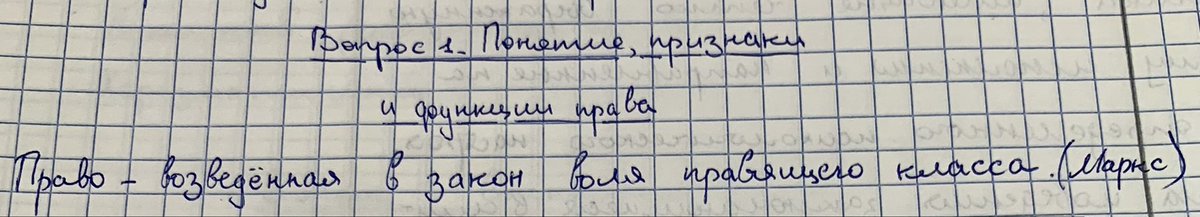 Вопрос 1. Понятие, признаки
и функции права
Право – возведённая в закон воля правящего класса. (Маркс)